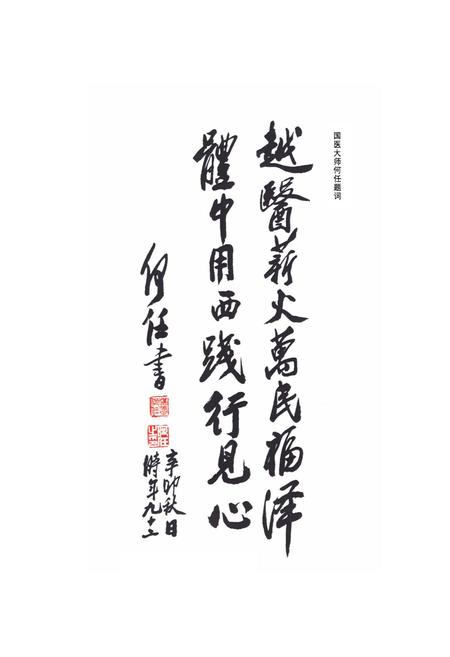 国医大师何任题词
越醫薪火萬民福泽
體中用西践行見心
何任書
辛卯秋日
時年九十二